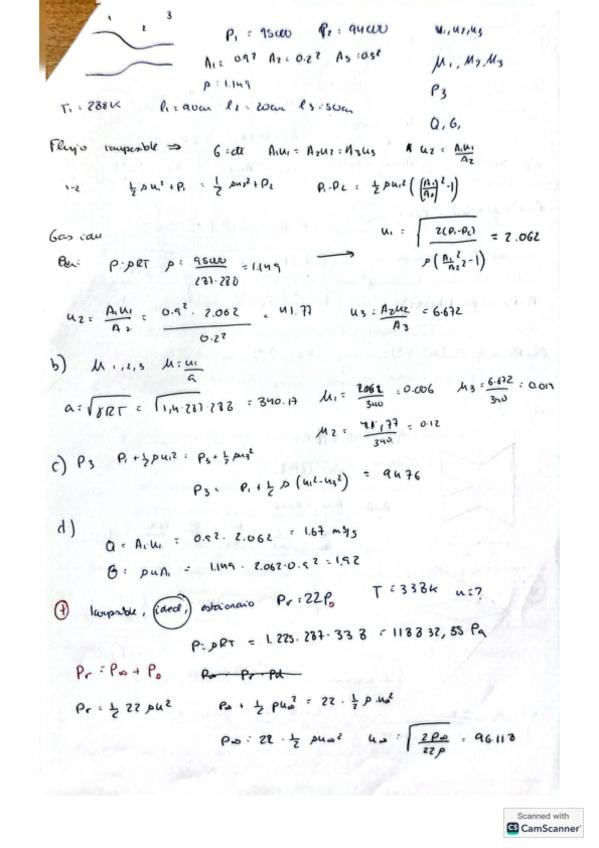 1 2 3
P₁ = 95000 P₂ = 94000 u₁, u₂, u₃
A₁ = 0.9² A₂ = 0.2² A₃ = 0.5² M₁, M₂, M₃
ρ = 1.149 P₃
T₁ = 288K l₁ = 90cm l₂ = 20cm l₃ = 50cm
Q, G,
Flujo ⇒ G = cte A₁u₁ = A₂u₂ = A₃u₃ u₂ = A₁u₁/A₂
1-2 ½ρu₁² + P₁ = ½ρu₂² + P₂ P₁-P₂ = ½ρu₁²((A₁/A₂)²-1)
Gas u₁ = √(2(P₁-P₂)/ρ(A₁²/A₂²-1)) = 2.062
P = ρRT ρ = 95000/287·288 = 1.149 →
u₂ = A₁u₁/A₂ = 0.9²·2.062/0.2² = 41.77 u₃ = A₂u₂/A₃ = 6.672
b) M₁,₂,₃ M = u₁/a
a = √γRT = √1,4·287·288 = 340.17 M₁ = 2062/340 = 0.006 M₃ = 6.672/340 = 0.019
M₂ = 41,77/340 = 0.12
c) P₃ P₁ + ½ρu₁² = P₃ + ½ρu₃²
P₃ = P₁ + ½ρ(u₁²-u₃²) = 9476
d)
Q = A₁·u₁ = 0.9²·2.062 = 1.67 m³/s
G = ρuA₁ = 1.149·2.062·0.9² = 1,92
(7) (ideal), estacionario Pr = 22P₀ T = 338K u = ?
P = ρRT = 1.225·287·338 = 118832,55 Pa
Pr = P∞ + P₀ P∞ = Pr - Pd
Pr = ½ 22 ρu² P∞ + ½ρu∞² = 22·½ρu∞²
P∞ = 22·½ρu∞² u∞ = √(2P∞/22ρ) = 96.113
Scanned with
CS CamScanner